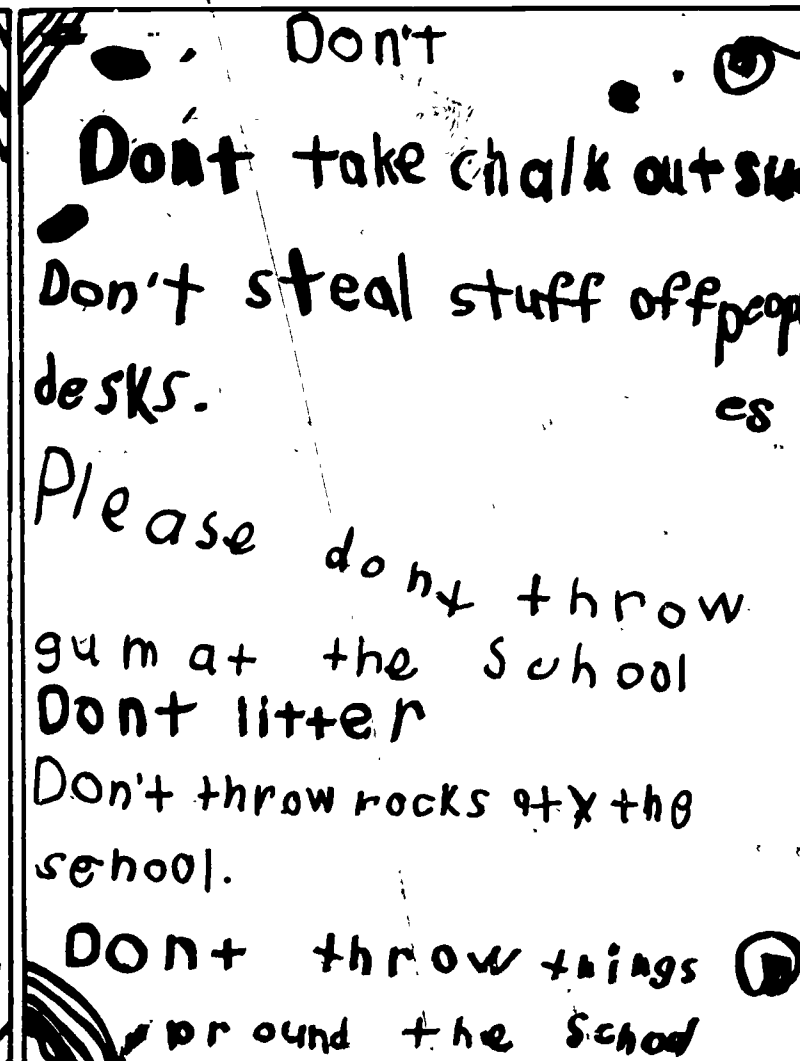 Don't
Dont take chalk out
Don't steal stuff off
desks. es
Please dont throw
gum at the School
Dont litter
Don't throw rocks at the
school.
Dont throw things
around the School